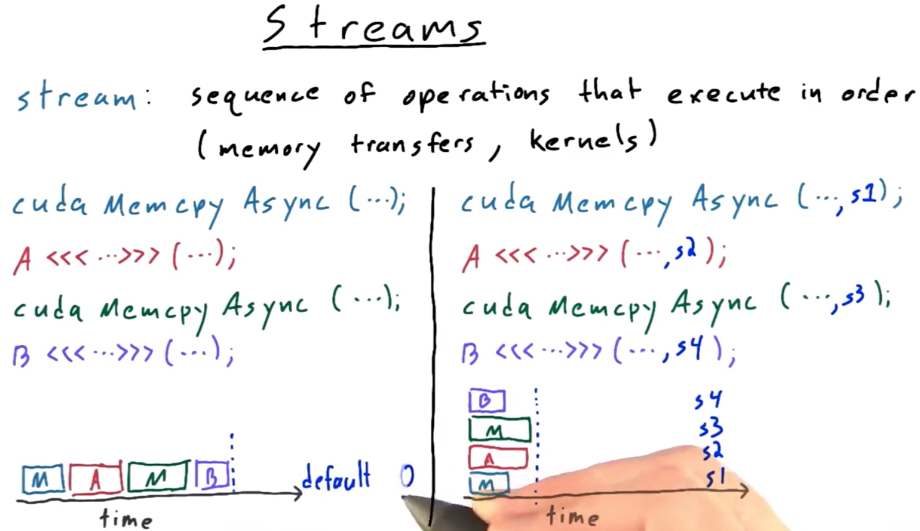 Streams
stream: sequence of operations that execute in order
(memory transfers, kernels)
cuda Memcpy Async (...);
A <<< ... >>> (...);
cuda Memcpy Async (...);
B <<< ... >>> (...);
M A M B
default 0
time
cuda Memcpy Async (..., s1);
A <<< ... >>> (..., s2);
cuda Memcpy Async (..., s3);
B <<< ... >>> (..., s4);
B s4
M s3
A s2
M s1
time